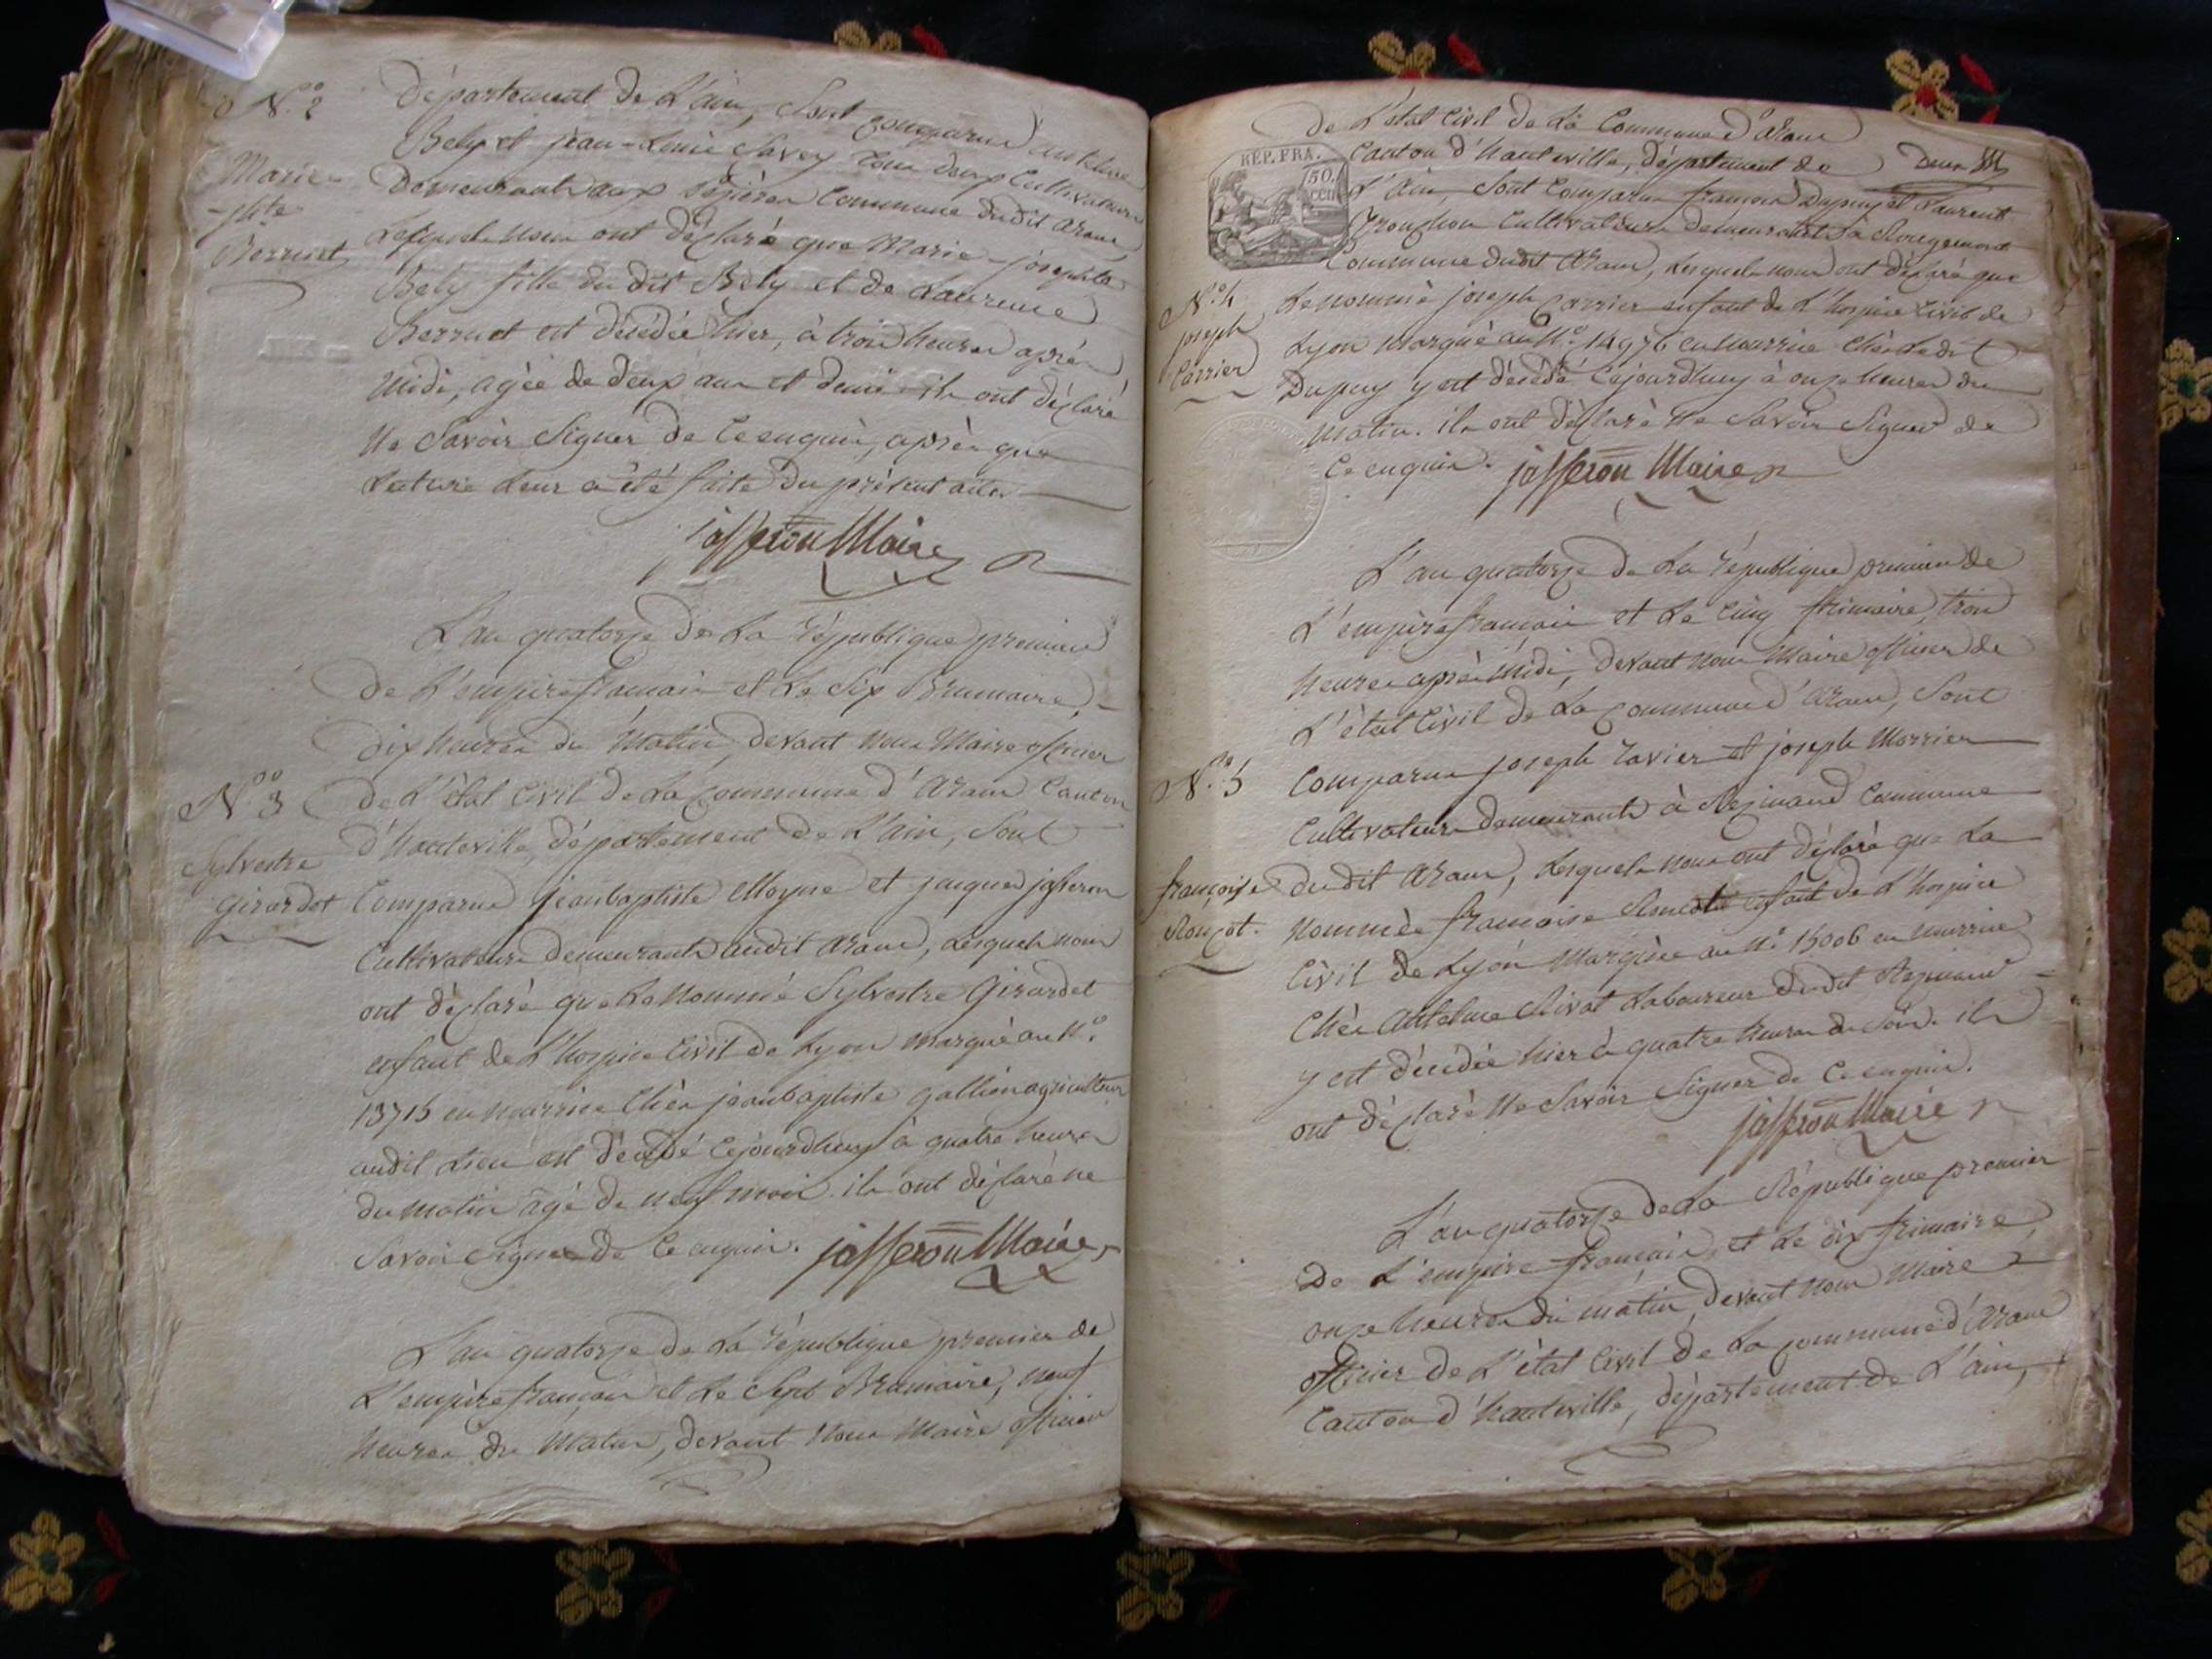 N.° 2
Marie-
-phte
Berruet
Département de L'ain, Sont comparus antelme
Bely et jean-Louis Savey tous deux Cultivateurs
demeurants aux Commune dudit aranc,
Lesquels nous ont déclaré que Marie-josephte
Bely fille du dit Bely et de Laurence
Berruet est décédée hier, à trois heures après
Midi, agée de deux ans et demi. ils ont déclaré
Ne Savoir Signer de Ce enquis, après que
Lecture Leur a été faite du présent acte.
jasseron Maire
L'an quatorze de La république premier
de L'empire francais et Le Six Brumaire,
dix heures du Matin, devant Nous Maire officier
N.° 3
Sylvestre
Girardet
de L'état Civil de La Commune d'aranc Canton
d'hauteville, département de L'ain, Sont
Comparus jeanbaptiste et jacques jasseron
Cultivateurs demeurants audit aranc, Lesquels nous
ont déclaré que Le nommé Sylvestre Girardet
enfant de L'hospice Civil de Lyon marqué au N.°
13715 en nourrice Chés jeanbaptiste gallien agriculteur
audit Lieu est décédé Cejourdhuy à quatre heures
du matin âgé de neuf mois. ils ont déclaré ne
Savoir signer de Ce enquis. jasseron Maire
L'an quatorze de La république premier de
L'empire francais et Le Sept Brumaire, neuf
heures du Matin, devant Nous Maire officier
de L'état Civil de La Commune d'aranc
RÉP. FRA.
50.
CEN
Canton d'hauteville, département de
deux
L'ain, Sont Comparus francois Dupuy et Laurent
Cultivateurs demeurants à Rougemont
Commune dudit aranc, Lesquels nous ont déclaré que
N.° 4
joseph
Carrier
Le nommé joseph Carrier enfant de L'hospice Civil de
Lyon Marqué au N.° 14976 en nourrice Chés Ledit
Dupuy y est décédé Cejourdhuy à onze heures du
Matin. ils ont déclaré Ne Savoir Signer de
Ce enquis. jasseron Maire
L'an quatorze de La république premier de
L'empire francais et Le Cinq frimaire, trois
heures après Midi, devant Nous Maire officier de
L'état Civil de La Commune d'aranc, Sont
N.° 5
françoise
Comparus joseph Savier et joseph
Cultivateurs demeurants à Commune
dudit aranc, Lesquels nous ont déclaré que La
Nommée francoise enfant de L'hospice
Civil de Lyon Marquée au N.° 15006 en nourrice
Chés antelme Rivat Laboureur dudit
y est décédée hier à quatre heures du Soir. ils
ont déclaré Ne Savoir Signer de Ce enquis.
jasseron Maire
L'an quatorze de La République premier
de L'empire francais, et Le dix frimaire,
onze heures du matin, devant Nous Maire
officier de L'état Civil de La commune d'aranc
Canton d'hauteville, département de L'ain,